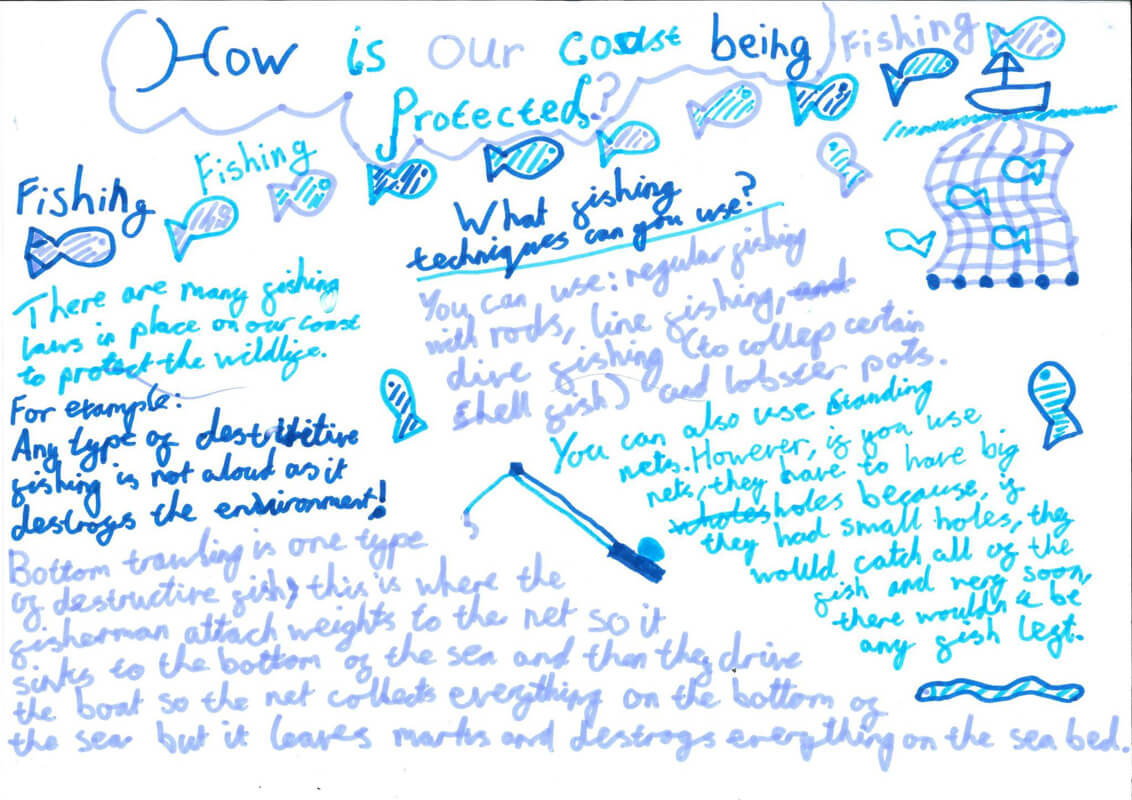 How is our coast being
Protected?
Fishing
Fishing
Fishing
There are many fishing
laws in place on our coast
to protect the wildlife.
For example:
Any type of destructive
fishing is not aloud as it
destroys the environment!
Bottom trawling is one type
of destructive fish, this is where the
fisherman attach weights to the net so it
sinks to the bottom of the sea and then they drive
the boat so the net collects everything on the bottom of
the sea but it leaves marks and destroys everything on the sea bed.
What fishing
techniques can you use?
You can use: regular fishing
with rods, line fishing, and
dive fishing (to collep certain
shell fish) and lobster pots.
You can also use standing
nets. However, if you use
nets, they have to have big
wholes holes because, if
they had small holes, they
would catch all of the
fish and very soon,
there wouldn't be
any fish left.